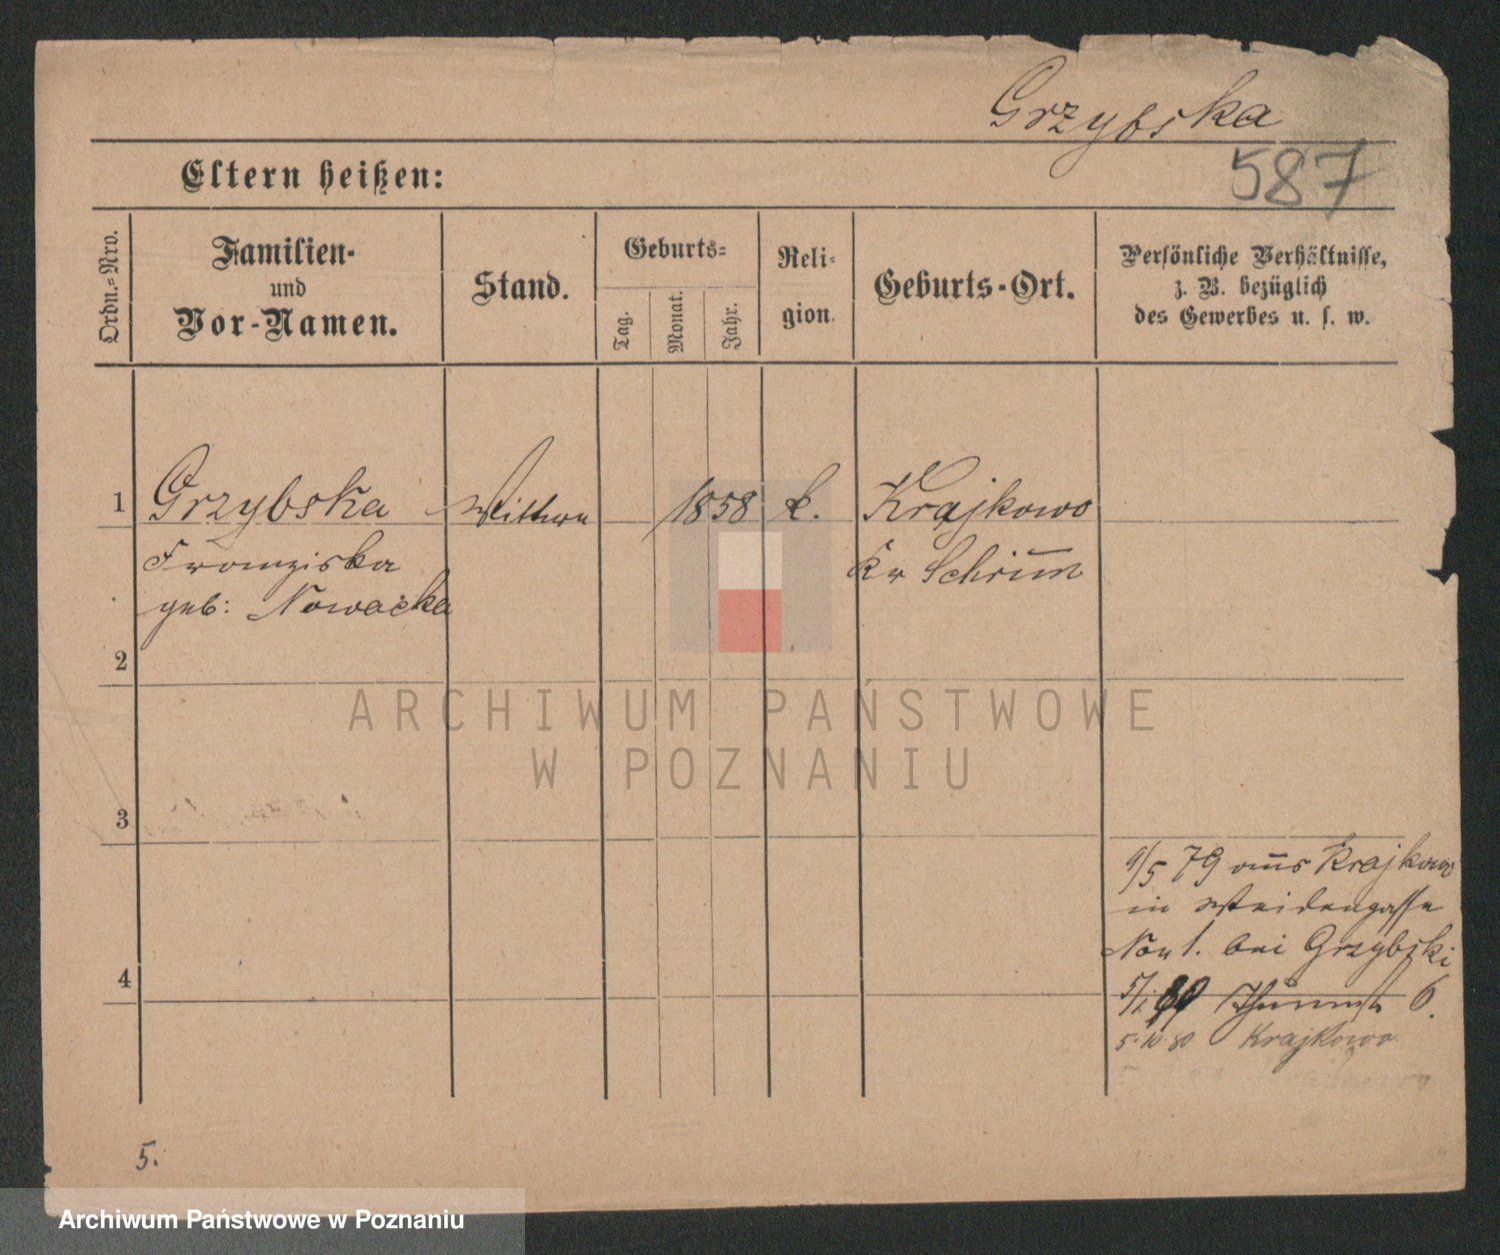 Grzybska
587
Eltern heißen:
Ordn.-Nro.
Familien-
und
Vor-Namen.
Stand.
Geburts-
Tag.
Monat.
Jahr.
Reli-
gion.
Geburts-Ort.
Persönliche Verhältnisse,
z. B. bezüglich
des Gewerbes u. s. w.
1 Grzybska Wittwe 1858 k. Krajkowo
Franziska Kr Schrim̄
geb: Nowacka
2
ARCHIWUM PAŃSTWOWE
W POZNANIU
3
9/5 79 aus Krajkowo
in Weidengasse
No 1. bei Grzybski
4
5/1 80 6.
5 10 80 Krajkowo
5.
Archiwum Państwowe w Poznaniu